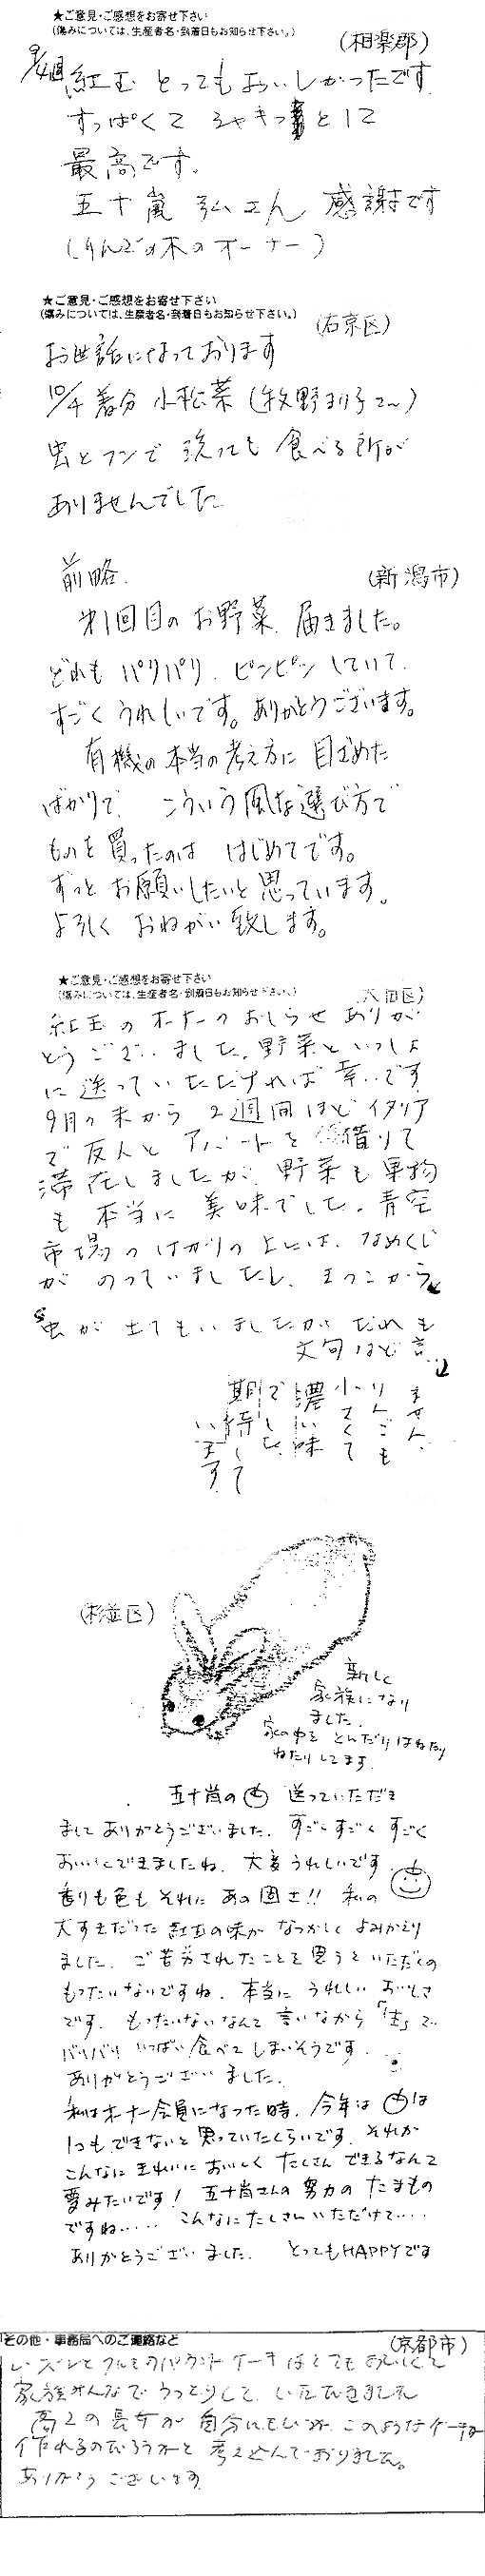 ★ご意見・ご感想をお寄せ下さい
(傷みについては、生産者名・到着日もお知らせ下さい。)
(相楽郡)
9/4週 紅玉 とってもおいしかったです
すっぱくて シャキっとして
最高です。
五十嵐 弘さん 感謝です
(りんごの木のオーナー)
★ご意見・ご感想をお寄せ下さい
(傷みについては、生産者名・到着日もお知らせ下さい。)
(右京区)
お世話になっております
10/4着分 小松菜 (牧野まり子さん)
虫とフンで 洗っても 食べる所が
ありませんでした
前略
(新潟市)
第1回目のお野菜、届きました。
どれも パリパリ、ピンピン していて、
すごく うれしいです。ありがとうございます。
有機の本当の考え方に 目ざめた
ばかりで、 こういう風な選び方で
ものを 買ったのは はじめてです。
ずっと お願いしたいと思っています。
よろしく おねがい致します。
★ご意見・ご感想をお寄せ下さい
(傷みについては、生産者名・到着日もお知らせ下さい。)
紅玉のオーナーのおしらせ ありが
とうございました。野菜といっしょ
に送っていただければ幸いです
9月の末から 2週間ほどイタリア
で友人とアパートを借りて
滞在しましたが、野菜も果物
も 本当に 美味でした。青空
市場のはかりの上には、なめくじ
がのっていましたし、まつこから
虫が出てもいましたがだれも
文句はど言い
ません。
りんごも
小さくても
濃い味
で
期待して
います。
(杉並区)
新しく
家族になり
ました。
家の中を とんだりはねたり
ねたりしてます。
五十嵐の 送っていただき
まして ありがとうございました。すごくすごく すごく
おいしくできましたね。大変うれしいです
香りも色も それに あの固さ!! 私の
大すきだった 紅玉の味が なつかしく よみがえり
ました。ご苦労されたことを思うと いただくの
もったいないですね。本当に うれしい おいしさ
です。もったいないなんて 言いながら「生」で
バリバリ いっぱい食べて しまいそうです。
ありがとうございました。
私はオーナー会員になった時、今年は は
1コもできないと思っていたくらいです。それが
こんなに きれいに おいしく たくさん できるなんて
夢みたいです! 五十嵐さんの 努力の たまもの
ですね‥‥ こんなにたくさんいただけて‥‥
ありがとうございました。 とってもHAPPYです
その他・事務局へのご連絡など
(京都市)
レーズンとクルミのパウンドケーキはとてもおいしくて
家族みんなで うっとりして いただきました
高2の長女が 自分にもいつか このようなケーキが
作れるのだろうかと 考え込んでおりました。
ありがとうございます